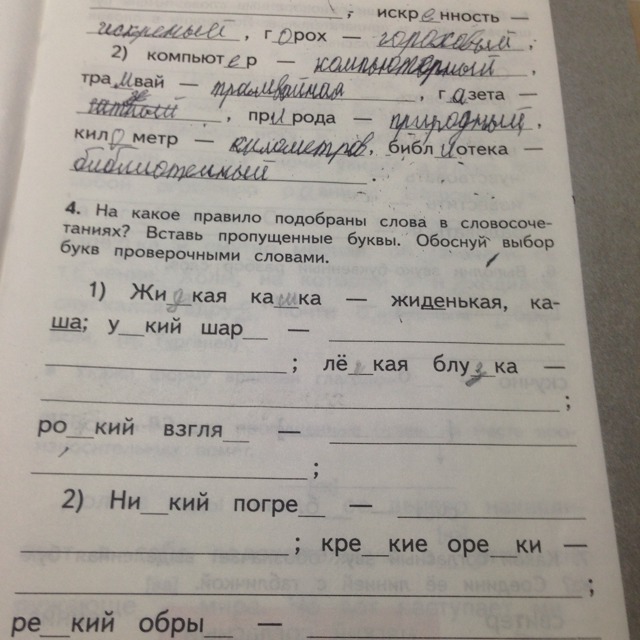 ; искренность —
искренный, горох — гороховый;
2) компьютер — компьюторный,
трамвай — трамвайная, газета —
, природа — природный,
километр — километров, библиотека —
библиотечный.
4. На какое правило подобраны слова в словосоче-
таниях? Вставь пропущенные буквы. Обоснуй выбор
букв проверочными словами.
1) Жидкая кашка — жиденькая, ка-
ша; у__кий шар__ —
; лё__кая блузка —
;
ро__кий взгля__ —
;
2) Ни__кий погре__ —
; кре__кие оре__ки —
;
ре__кий обры__ —